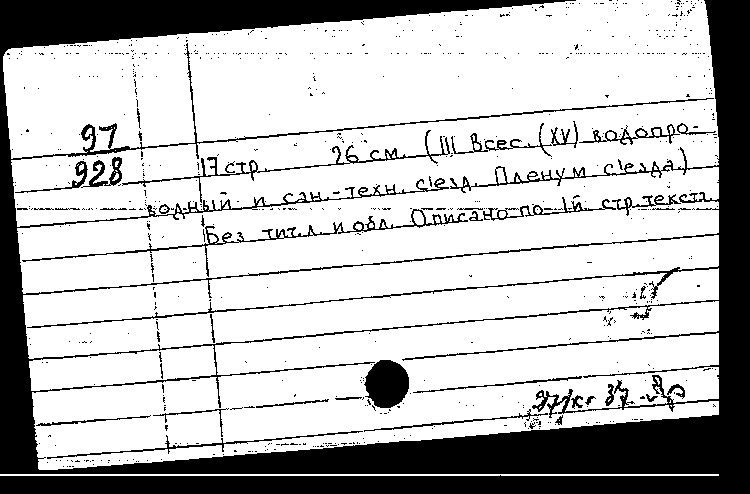 97
928
17 стр. 26 см. (III Всес. (XV) водопро-
водный и сан.-техн. с'езд. Пленум с'езда.)
Без тит.л. и обл. Описано по 1й стр. текста